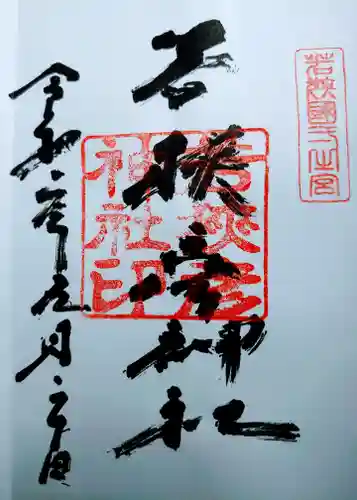 若狭國一之宮
若狭彦神社
若狭彦神社印
令和 年九月 日